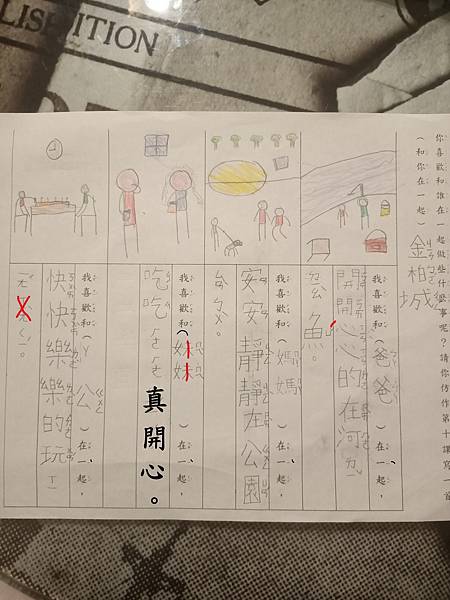 ITION
你喜歡和誰在一起做些什麼事呢？請你仿作第十課寫一首
（和你在一起） 金柏城
我喜歡和（爸爸）在一起，
開開心心的在河
魚。
我喜歡和（媽媽）在一起，
安安靜靜在公園
我喜歡和（妹妹）在一起，
吃吃ㄏㄜㄏㄜ真開心。
我喜歡和（ㄚ公）在一起，
快快樂樂的玩ㄒㄧ